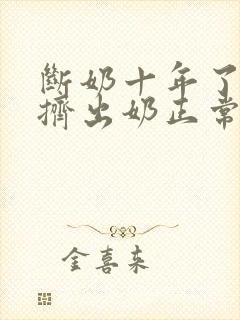 斷奶十年了
擠出奶正常
金喜来